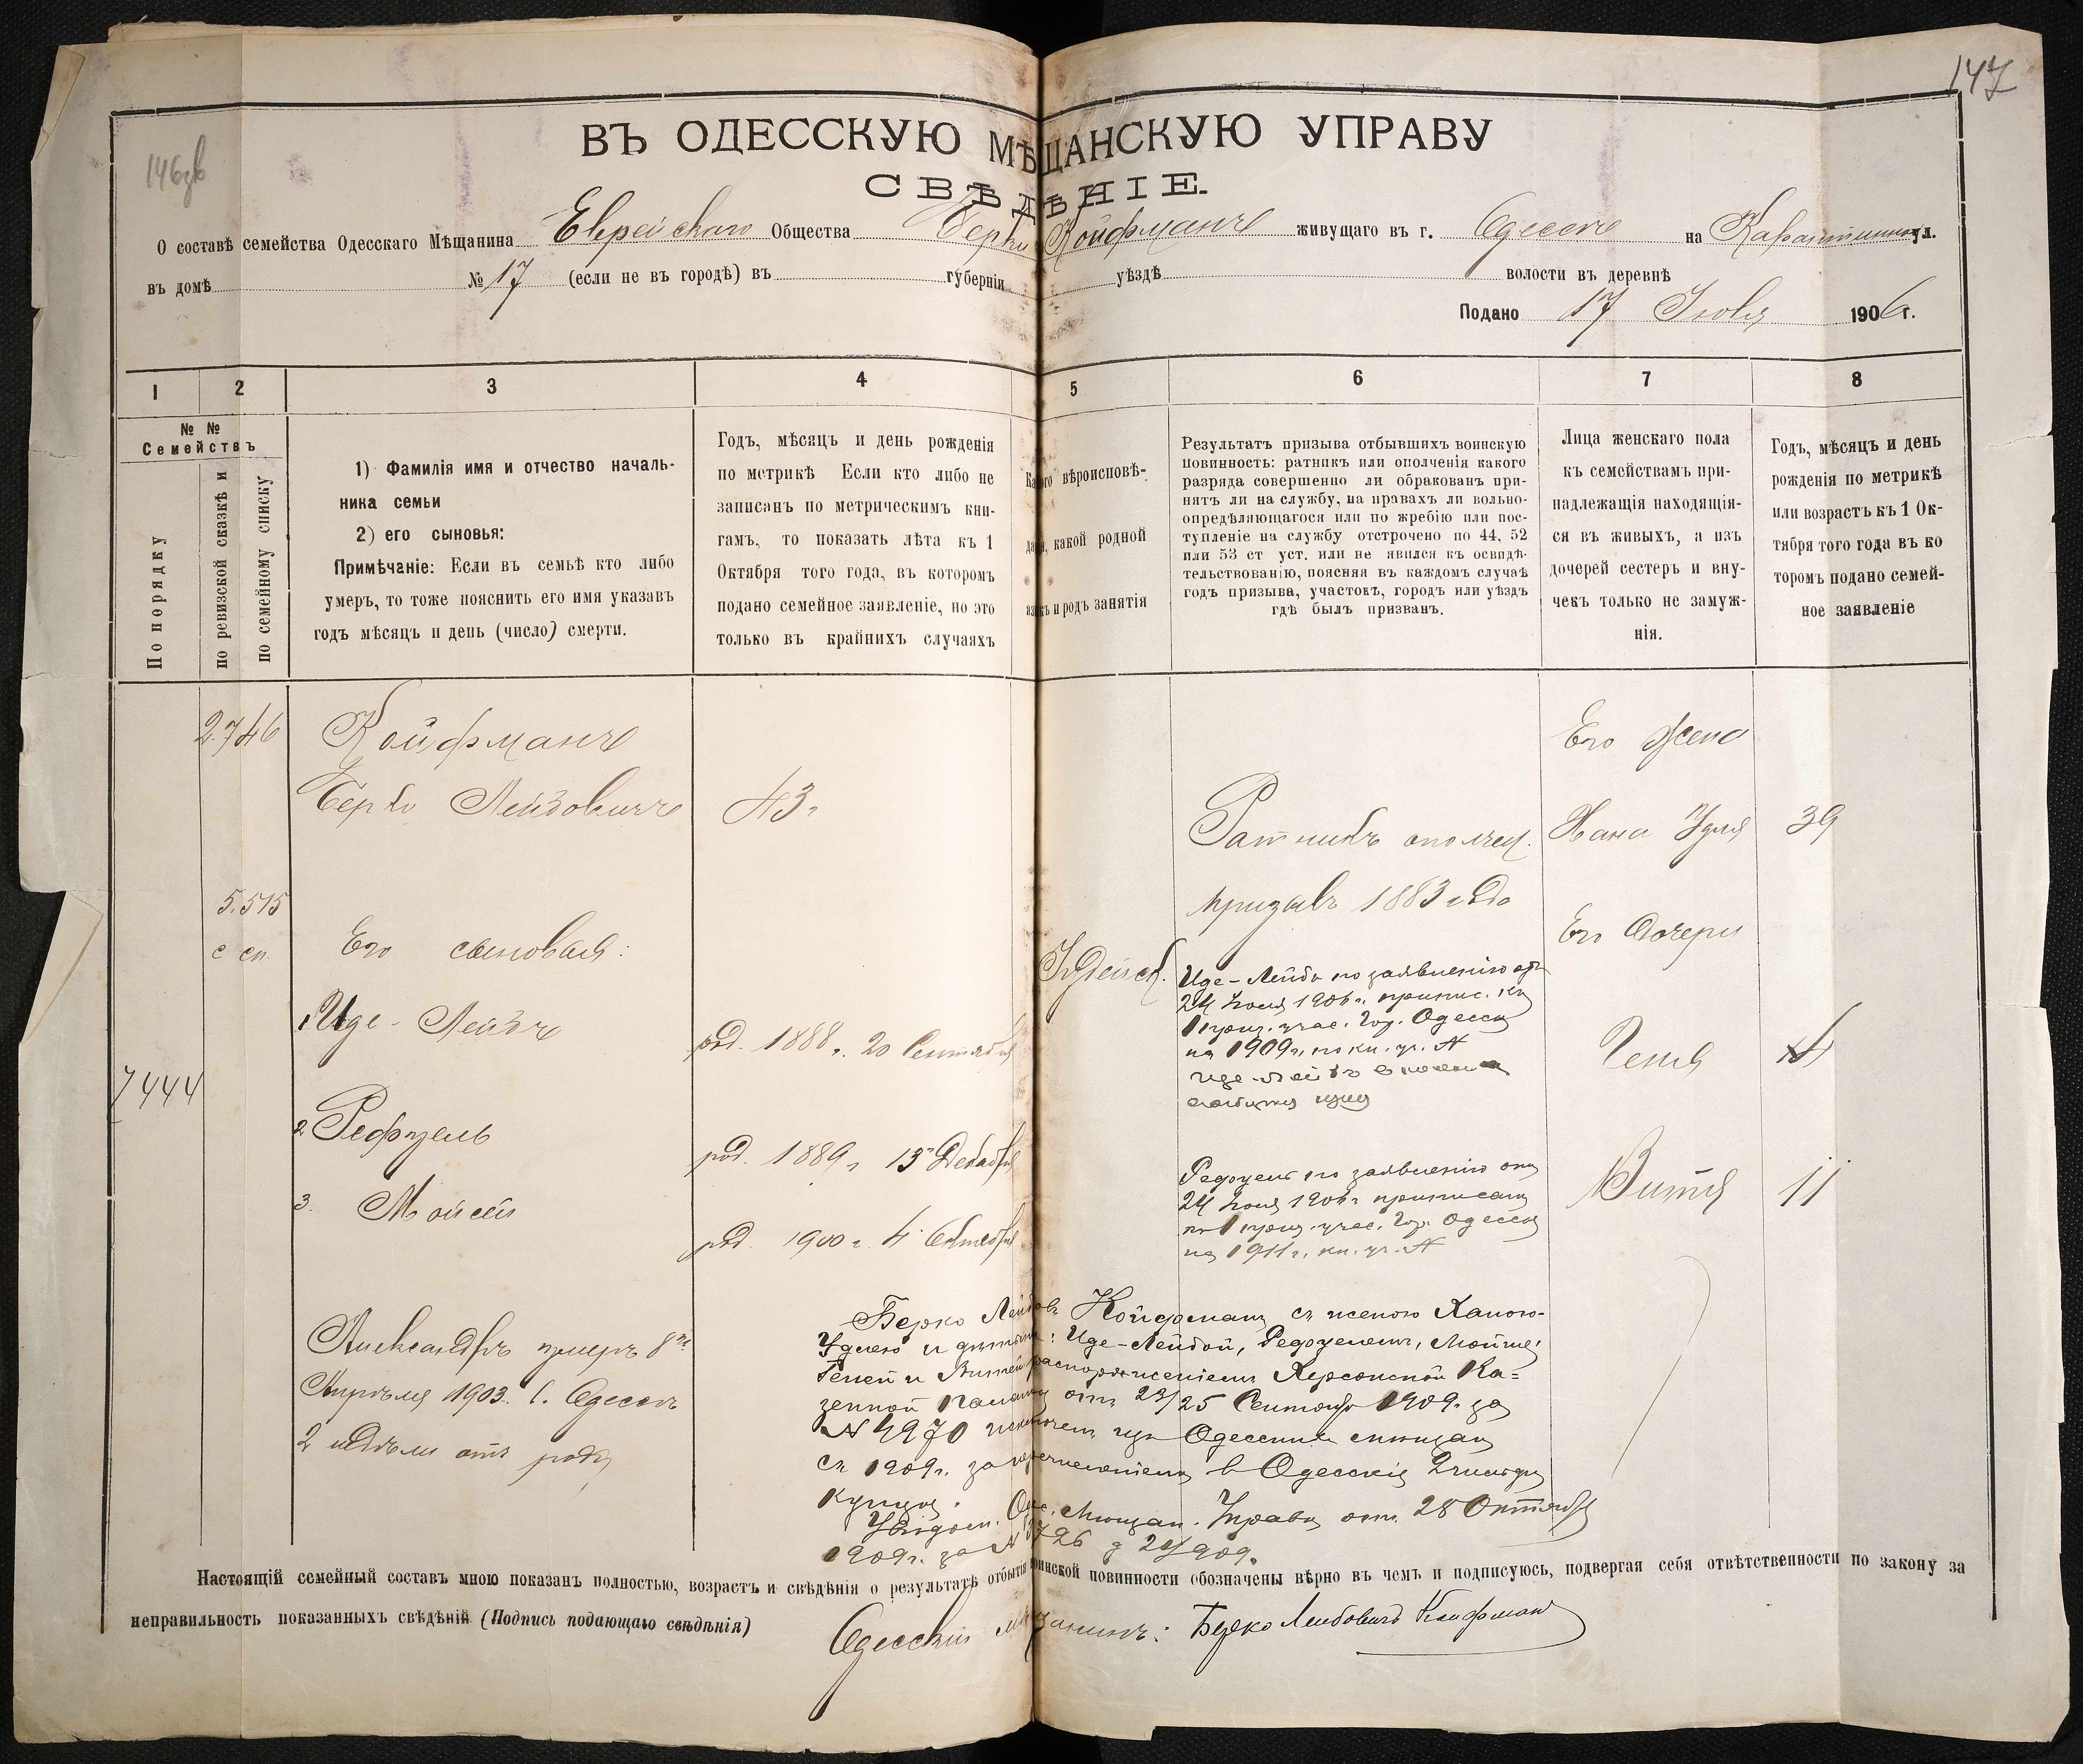 147
146об
ВЪ ОДЕССКУЮ МѢЩАНСКУЮ УПРАВУ
СВѢДѢНІЕ.
О составѣ семейства Одесскаго Мѣщанина Еврейскаго Общества Берки Койфманъ живущаго въ г. Одессѣ на Карантинной ул.
въ домѣ № 17 (если не въ городѣ) въ губерніи уѣздѣ волости въ деревнѣ
Подано 17 Іюля 1906 г.
1 2 3 4 5 6 7 8
№ №
Семействъ
По порядку
по ревизской сказкѣ и
по семейному списку
1) Фамилія имя и отчество началь-
ника семьи
2) его сыновья:
Примѣчаніе: Если въ семьѣ кто либо
умеръ, то тоже пояснить его имя указавъ
годъ мѣсяцъ и день (число) смерти.
Годъ, мѣсяцъ и день рожденія
по метрикѣ Если кто либо не
записанъ по метрическимъ кни-
гамъ, то показать лѣта къ 1
Октября того года, въ которомъ
подано семейное заявленіе, но это
только въ крайнихъ случаяхъ
Какого вѣроисповѣ-
данія, какой родной
языкъ и родъ занятія
Результатъ призыва отбывшихъ воинскую
повинность: ратникъ или ополченія какого
разряда совершенно ли обракованъ при-
нятъ ли на службу, на правахъ ли вольно-
опредѣляющагося или по жребію или пос-
тупленіе на службу отсрочено по 44, 52
или 53 ст уст. или не явился къ освидѣ-
тельствованію, поясняя въ каждомъ случаѣ
годъ призыва, участокъ, городъ или уѣздъ
гдѣ былъ призванъ.
Лица женскаго пола
къ семействамъ при-
надлежащія находящія-
ся въ живыхъ, а изъ
дочерей сестеръ и вну-
чекъ только не замуж-
нія.
Годъ, мѣсяцъ и день
рожденія по метрикѣ
или возрастъ къ 1 Ок-
тября того года въ ко
торомъ подано семей-
ное заявленіе
2.746 Койфманъ
Берко Лейбовичъ 43 г
Ратникъ ополчен.
призывъ 1883 года
Его жена
Хана Удля 39
5.515
с сп.
Его сыновья:
Іудейск.
Его дочери
1 Иде-Лейбъ род. 1888 г. 20 Сентября
Иде-Лейба по заявленію отъ
24 Іюля 1906 г. припис. къ
1 приз. учас. Гор. Одессы
на 1909 г. по кн. уч. №
Геня 14
7444
2 Рефуель род. 1889 г 15 Декабря
Рефуель по заявленію отъ
24 Іюля 1906 г приписанъ
къ 1 приз. учас. Гор. Одессы
на 1911 г. кн. уч. №
Витя 11
3. Мойсей род. 1900 г. 4 Октября
Александръ умеръ 8го
Апрѣля 1903. в. Одессѣ
2 недѣли отъ роду
Берко Лейбовъ Койфманъ съ женою Ханою-
Удлею и дѣтьми: Иде-Лейбой, Рефуелемъ, Мойше,
Геней и Витей распоряженіемъ Херсонской Ка-
зенной Палаты отъ 23/25 Сентября 1909 г. за
№ 4970 исключенъ изъ Одесскихъ мѣщанъ
съ 1909 г. за перечисленіемъ в Одесскіе 2 гильдіи
купцы.
Увѣдом. Одес. Мѣщан. Управы отъ 28 Октября
1909 г. за № 3726 д 24/909.
Настоящій семейный составъ мною показанъ полностью, возрастъ и свѣдѣнія о результатѣ отбытія воинской повинности обозначены вѣрно въ чемъ и подписуюсь, подвергая себя отвѣтственности по закону за
неправильность показанныхъ свѣдѣній (Подпись подающаго свѣдѣнія)
Одесскій мѣщанинъ: Берко Лейбовичъ Койфманъ